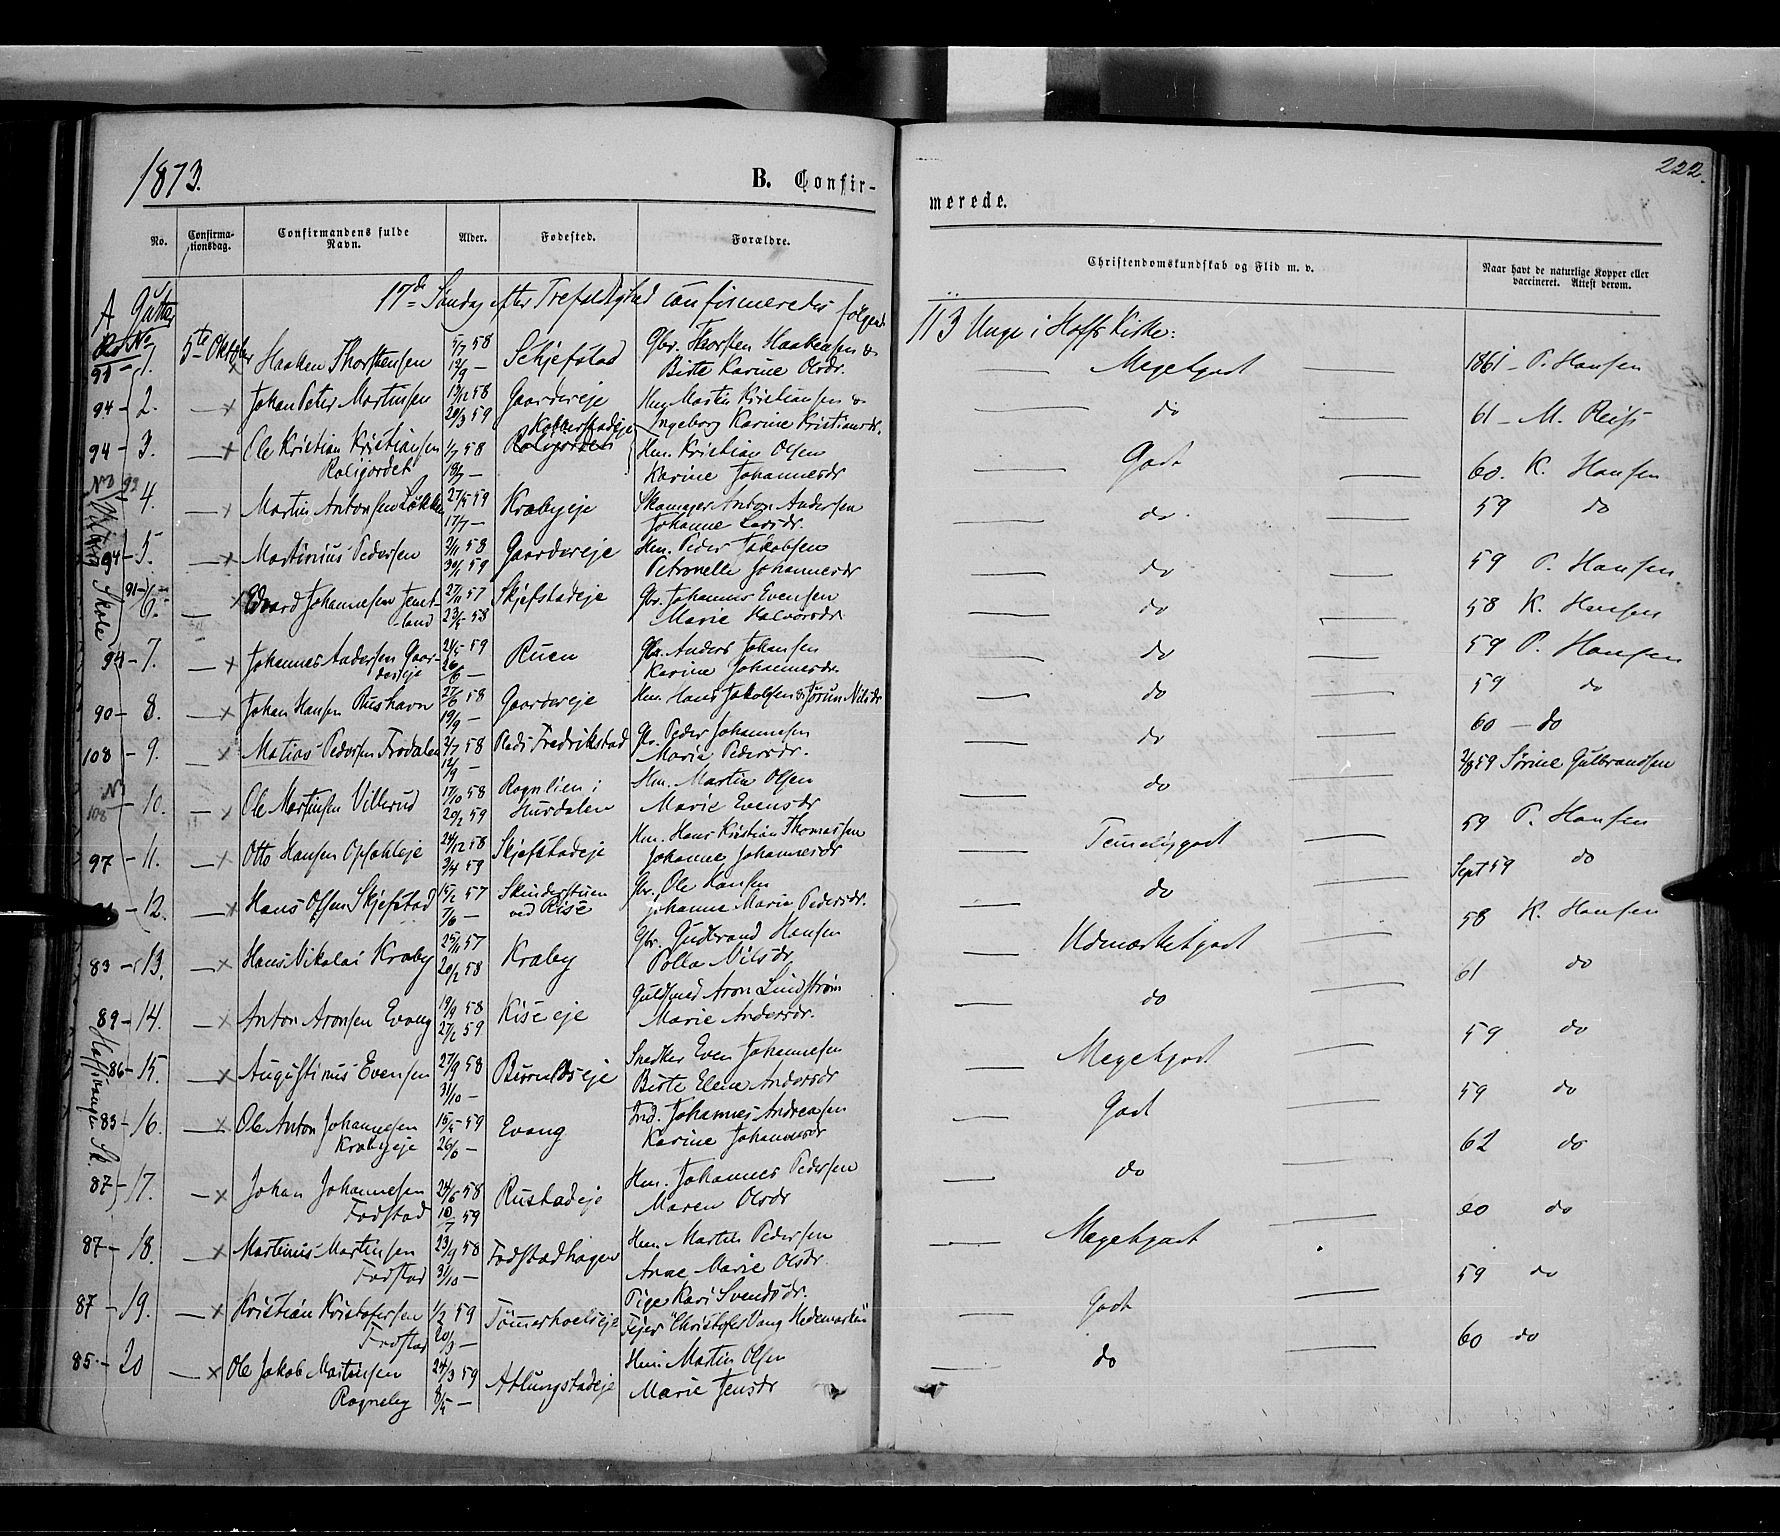 1873.
B. Confir-
merede.
222.
No.
Confirma-
tionsdag.
Confirmandens fulde
Navn.
Alder.
Fødested.
Forældre.
Christendomskundskab og Flid m. v.
Naar havt de naturlige Kopper eller
vaccineret. Attest derom.
17de Søndag efter Trefoldighed confirmeredes følgende
113 Unge i Hoffs Kirke:
A Gutter
No
91 1. 5te Oktober Haaken Thorstensen 5/7 58 Schjefstad Gbr. Thorsten Haakensen &
12/9 — Birte Karine Olsdr. Megetgodt 1861 P. Hansen
94 - 2. — Johan Peter Martinsen 12/12 58 Gaardereje Hm. Martin Kristiansen &
20/3 59 Ingeborg Karine Kristiansdr. do 61 - M. Reiss
94 - 3. — Ole Kristian Kristiansen 1/7 58 Kolberstadeje Hm. Kristian Olsen
Roligordet — Roligordet Karine Johannesdr Godt 60. K. Hansen
93 4. — Martin Antonsen Løkken 27/5 59 Krabyeje Skomager Anton Andersen
17/7 — Johanne Larsdr. do. 59 do
94 - 5. — Martinius Pedersen 2/11 58 Gaardereje Hm. Peder Jakobsen
30/1 59 Petronelle Johannesdr do 59 P. Hansen
91 - 6. — Edvard Johannesen Jemt-
land 27/11 57 Skjefstadeje Gbr. Johannes Evensen
23/5 58 Marie Halvorsdr do 58 K. Hansen
94 - 7. — Johannes Andersen Gaar-
dereje 24/5 59 Ruen Gbr. Anders Johansen
26/6 — Karine Johannesdr. do 59 P. Hansen
90 - 8. — Johan Hansen Rushavn 27/6 58 Gaardereje Hm. Hans Jakobsen & Jørun Nilsdr
19/9 — do 59 do
108 - 9. — Matias Pedersen Frodalen 2/7 58 Præsti Fredrikstad Gbr. Peder Johannesen
12/9 — Marie Pedersdr. do 60 — do
108 - 10. — Ole Martinsen Villerud 17/10 58 Rognlien i Hm. Martin Olsen
20/2 59 Hurdalen Marie Evensdr do 2/8 59 Sørine Gulbrandsen
97 - 11. — Otto Hansen Opsahleje 24/12 58 Skjefstadeje Hm. Hans Kristian Thomassen
3/4 59 Johanne Johannesdr Temeliggodt 59 P. Hansen
- 12. — Hans Olsen Skjefstad 15/2 57 Skinderstuen Gbr. Ole Hansen
7/6 — ved Kise Johanne Marie Pedersdr. do Sept 59 do
83 - 13. — Hans Nikolai Kraby 25/11 57 Kraby Gbr. Gudbrand Hansen
20/2 58 Polla Nilsdr. Udmærketgodt 58 K. Hansen
89 - 14. — Anton Aronsen Evang 19/9 58 Kise eje Guldsmed Aron Lindstrøm
27/2 59 Marie Andersdr. do 61 do
86 - 15. — Augustinus Evensen 27/9 58 Snedker Even Johannesen
31/10 — Birte Elene Andersdr Megetgodt 59 do
83 - 16. — Ole Anton Johannesen 15/5 59 Evang Ind. Johannes Andreasen
Krabyeje 26/6 — Karine Johannesdr Godt 59 do
87 - 17. — Johan Johannesen 24/6 58 Rustadeje Hm. Johannes Pedersen
Fodstad 10/7 59 Maren Olsdr do 62 do
87 - 18. — Martinius Martinsen 23/9 58 Fodstadhagen Hm. Martin Pedersen
Fodstad 31/10 — Anne Marie Olsdr. Megetgodt 60 do
87 - 19. — Kristian Kristofersen 1/2 59 Tømmerholseje Pige Kari Svendsdr.
Fodstad 20/3 — Fejer Christofer Vang Hedemarken Godt 59 do
85. - 20 — Ole Jakob Martinsen 24/3 59 Atlungstadeje Hm. Martin Olsen
Rogneby 8/5 — Marie Jensdr do 60 do